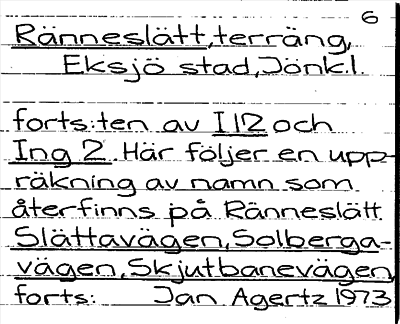 6
Ränneslätt, terräng,
Eksjö stad, Jönk.l.
forts: ten av I 12 och
Ing 2. Här följer en upp-
räkning av namn som
återfinns på Ränneslätt.
Slättavägen, Solberga-
vägen, Skjutbanevägen,
forts: Jan Agertz 1973